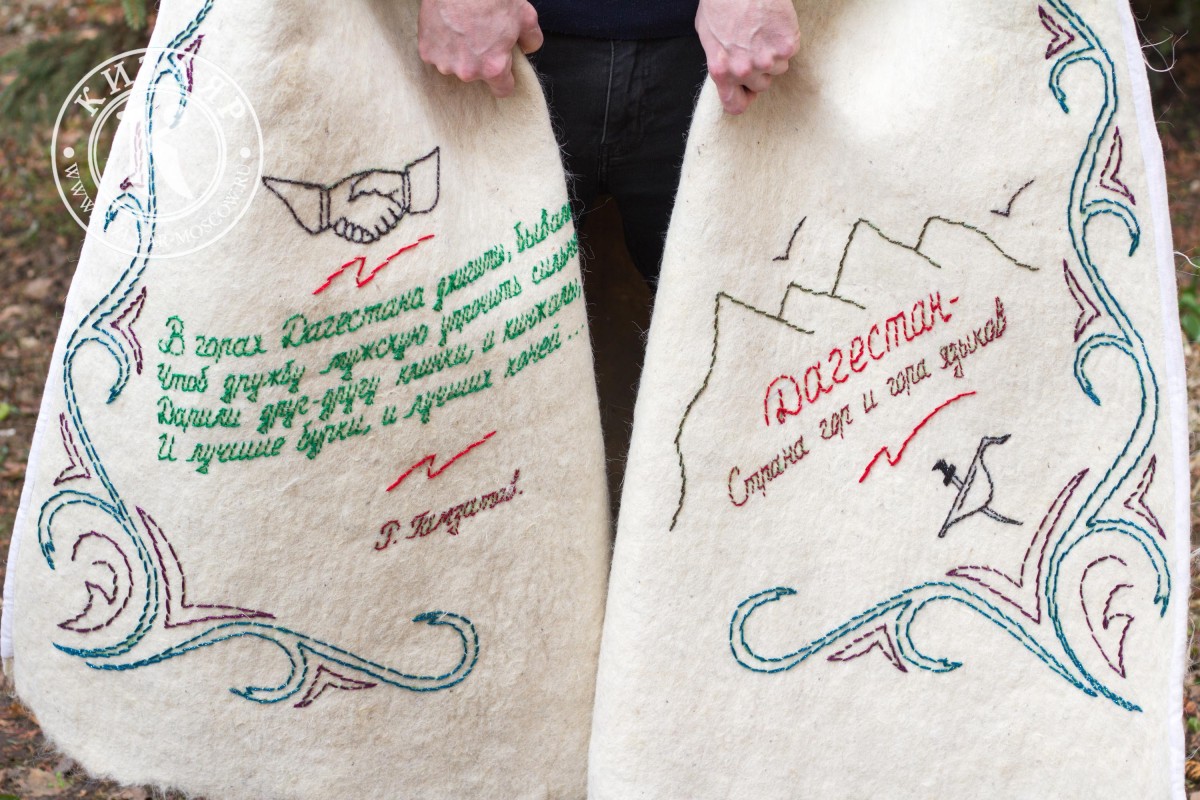 КИЗЛЯР
WWW.KIZLYAR-MOSCOW.RU
В горах Дагестана джигиты, бывало,
Чтоб дружбу мужскую упрочить сильней,
Дарили друг-другу клинки, и кинжалы,
И лучшие бурки, и лучших коней...
Р. Гамзатов.
Дагестан-
Страна гор и гора языков